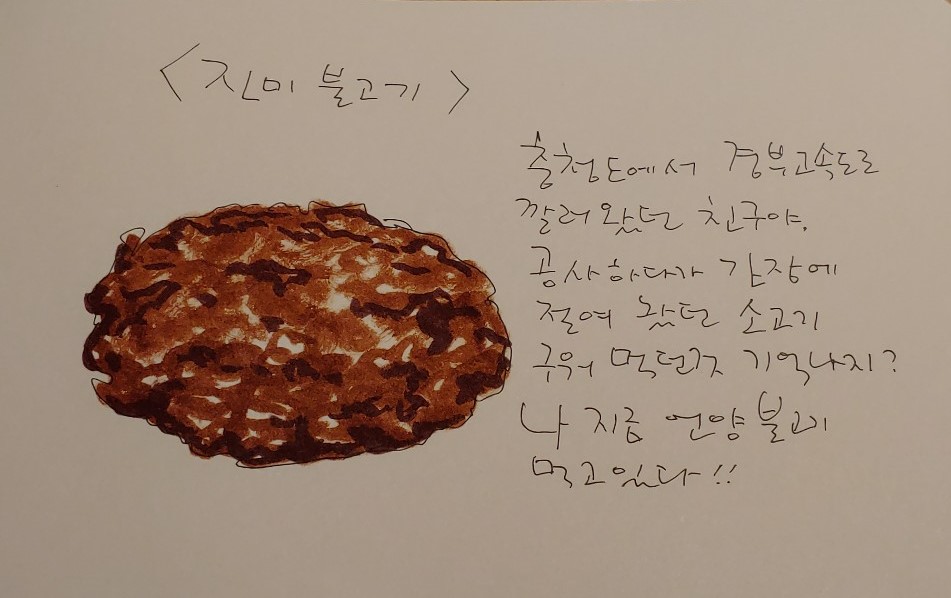 <진미 불고기>
충청도에서 경부고속도로
깔러 왔던 친구야.
공사하다가 간장에
절여 놨던 소고기
구워 먹던것 기억나지?
나 지금 언양불고기
먹고있다!!